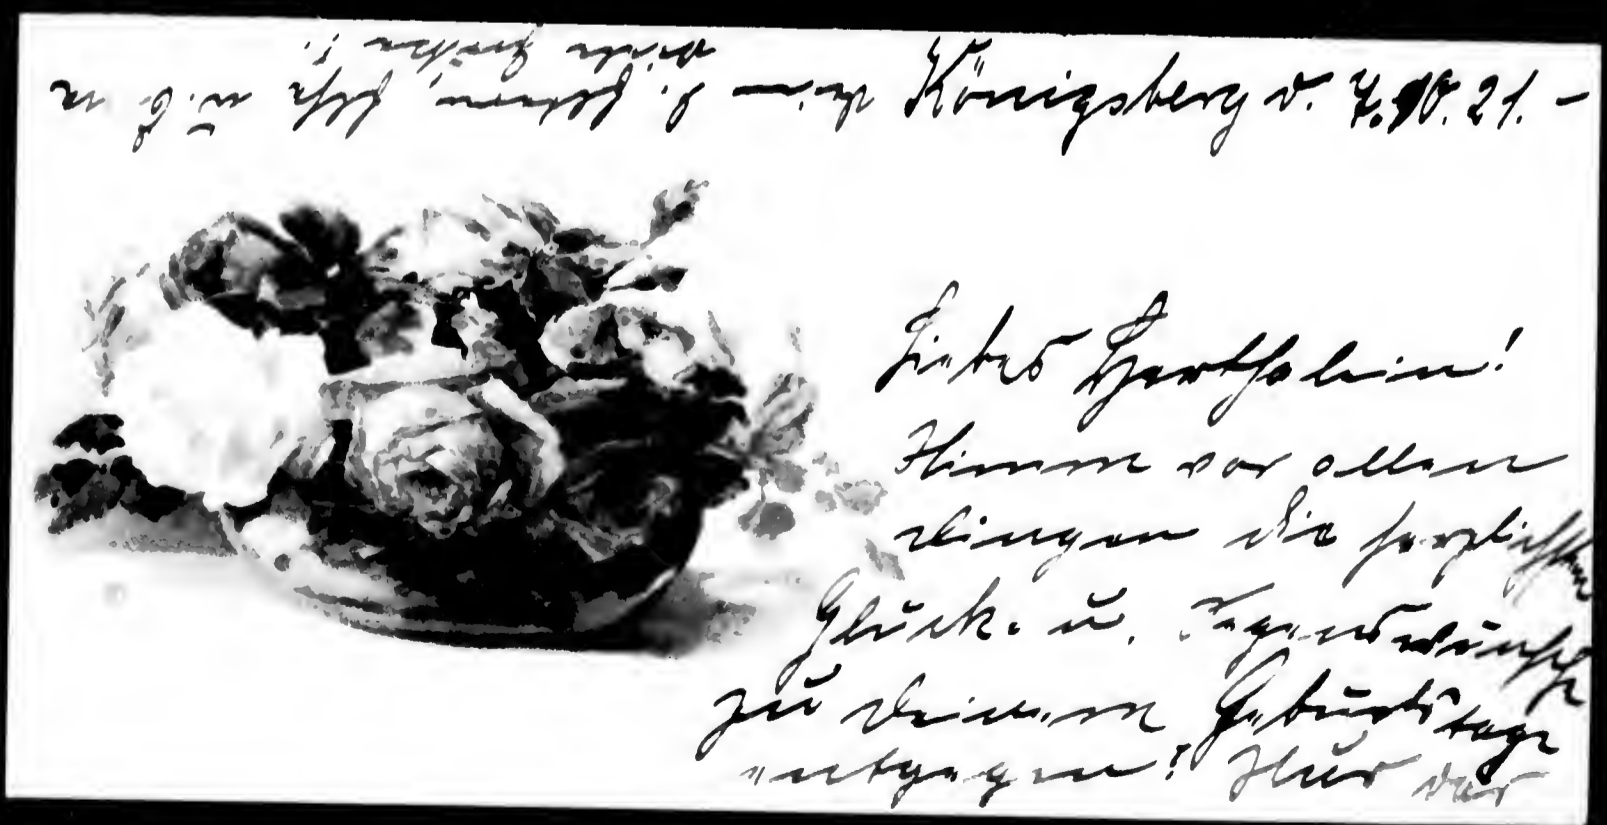 Königsberg d. 7.10.21. –
Liebes Herthalein!
Nimm vor allen
Dingen die herzlichsten
Glück- u. Segenswünsche
zu Deinem Geburtstage
entgegen! Nur der